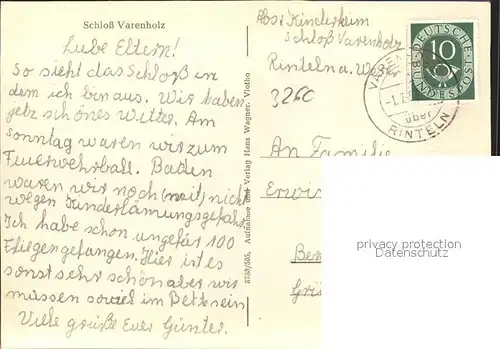 Schloß Varenholz
Liebe Eltern!
So sieht das Schloß in
dem ich bin aus. Wir haben
jetz schönes Witter. Am
sonntag waren wir zum
Feuerwehrball. Baden
waren wir noch (nit) nicht
wegen Kinderlämungsgefahr
Ich habe schon ungefär 100
Fliegengefangen. Hier ist es
sonst sehr schön aber wir
müssen soviel im Bett sein
Viele grüße Euer Günter.
8738/505, Aufnahme und Verlag Hans Wagner, Vlotho
Abs: Kinderheim
Schloß Varenholz
Rinteln a. Weser
3260
DEUTSCHE BUNDESPOST
10
VAREN
-1.7.
über
RINTELN
An Familie
Erwi
Be
Gr
privacy protection
Datenschutz